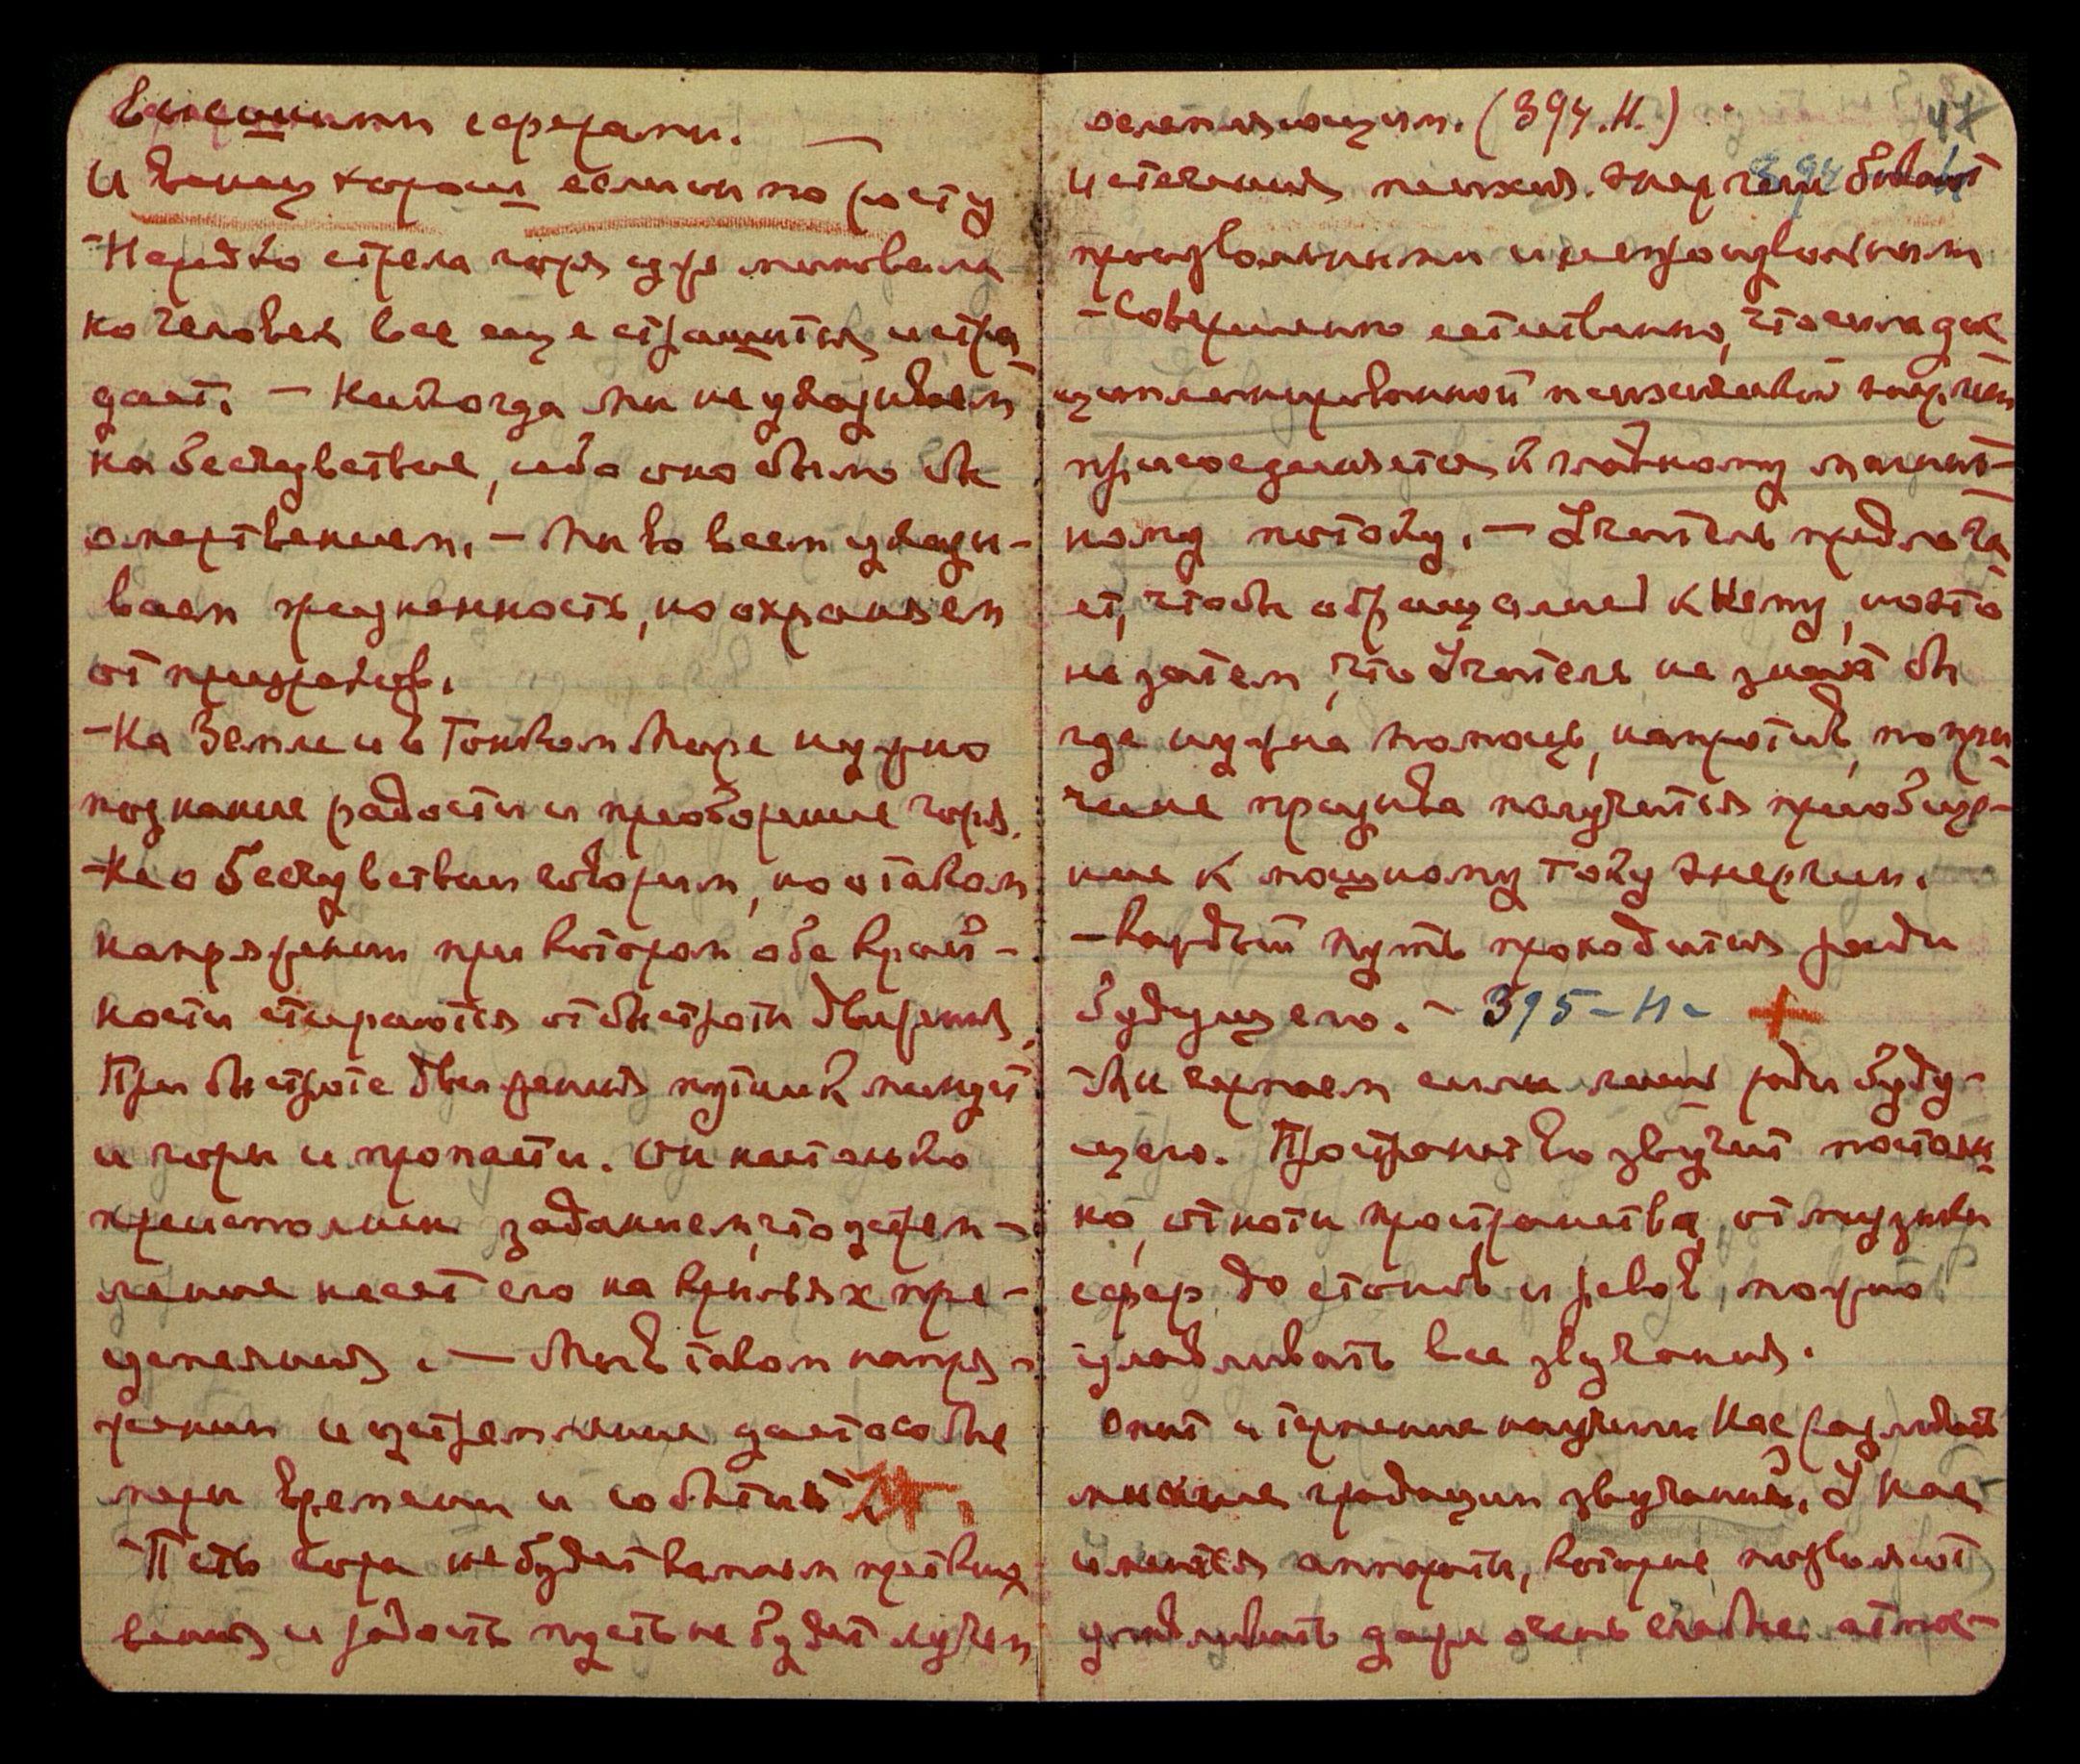 внешними серьгами.
И венец хорош если он по росту
- Нередко стрела горя уже миновала
но человек все еще страшится и стра
дает. - Никогда мы не указываем
на бесчувствие, ибо оно было бы
омертвением. - Мы во всем указы-
ваем жизненность, но охраняем
от призраков.
- На Земле и в Тонком Мире нужно
познание радости и преоборение горя.
- Не о бесчувствии говорим, но о таком
напряжении при котором обе край-
ности стираются от быстроты движения
При быстроте движения путник минует
и горы и пропасти. Он настолько
преисполнен заданием, что устрем-
ление несет его на крыльях пре-
одоления. - Мы в таком напря-
жении и устремлении даст особые
меры времени и событий
- Пусть горе не будет камнем преткно
вения и радость пусть не будет лучем
ослепляющим. (394.Н.)
47
394
Истечения психич. энергии бывают
произвольными и непроизвольными
- Совершенно естественно, что сила дис
циплинированной психической энергии
присоединяется к такому мощ
ному потоку. - Учитель предлага
ет, чтобы обращались к Нему, но это
не затем, что Учитель не знает бы
где нужна помощь, напротив, по при
чине призыва получится приобще-
ние к мощному току энергии.
- Каждый путь проходится ради
будущего. - 395-Н-
- Мы черпаем силы лишь ради буду-
щего. Пространство звучит постоян
но, от ноты пространства, от музыки
сфер до стонов и ревов, можно
улавливать все звучания.
Опыт и терпение научили Нас различать
многие градации звучаний. У Нас
имеются аппараты, которые позволяют
улавливать даже очень слабые